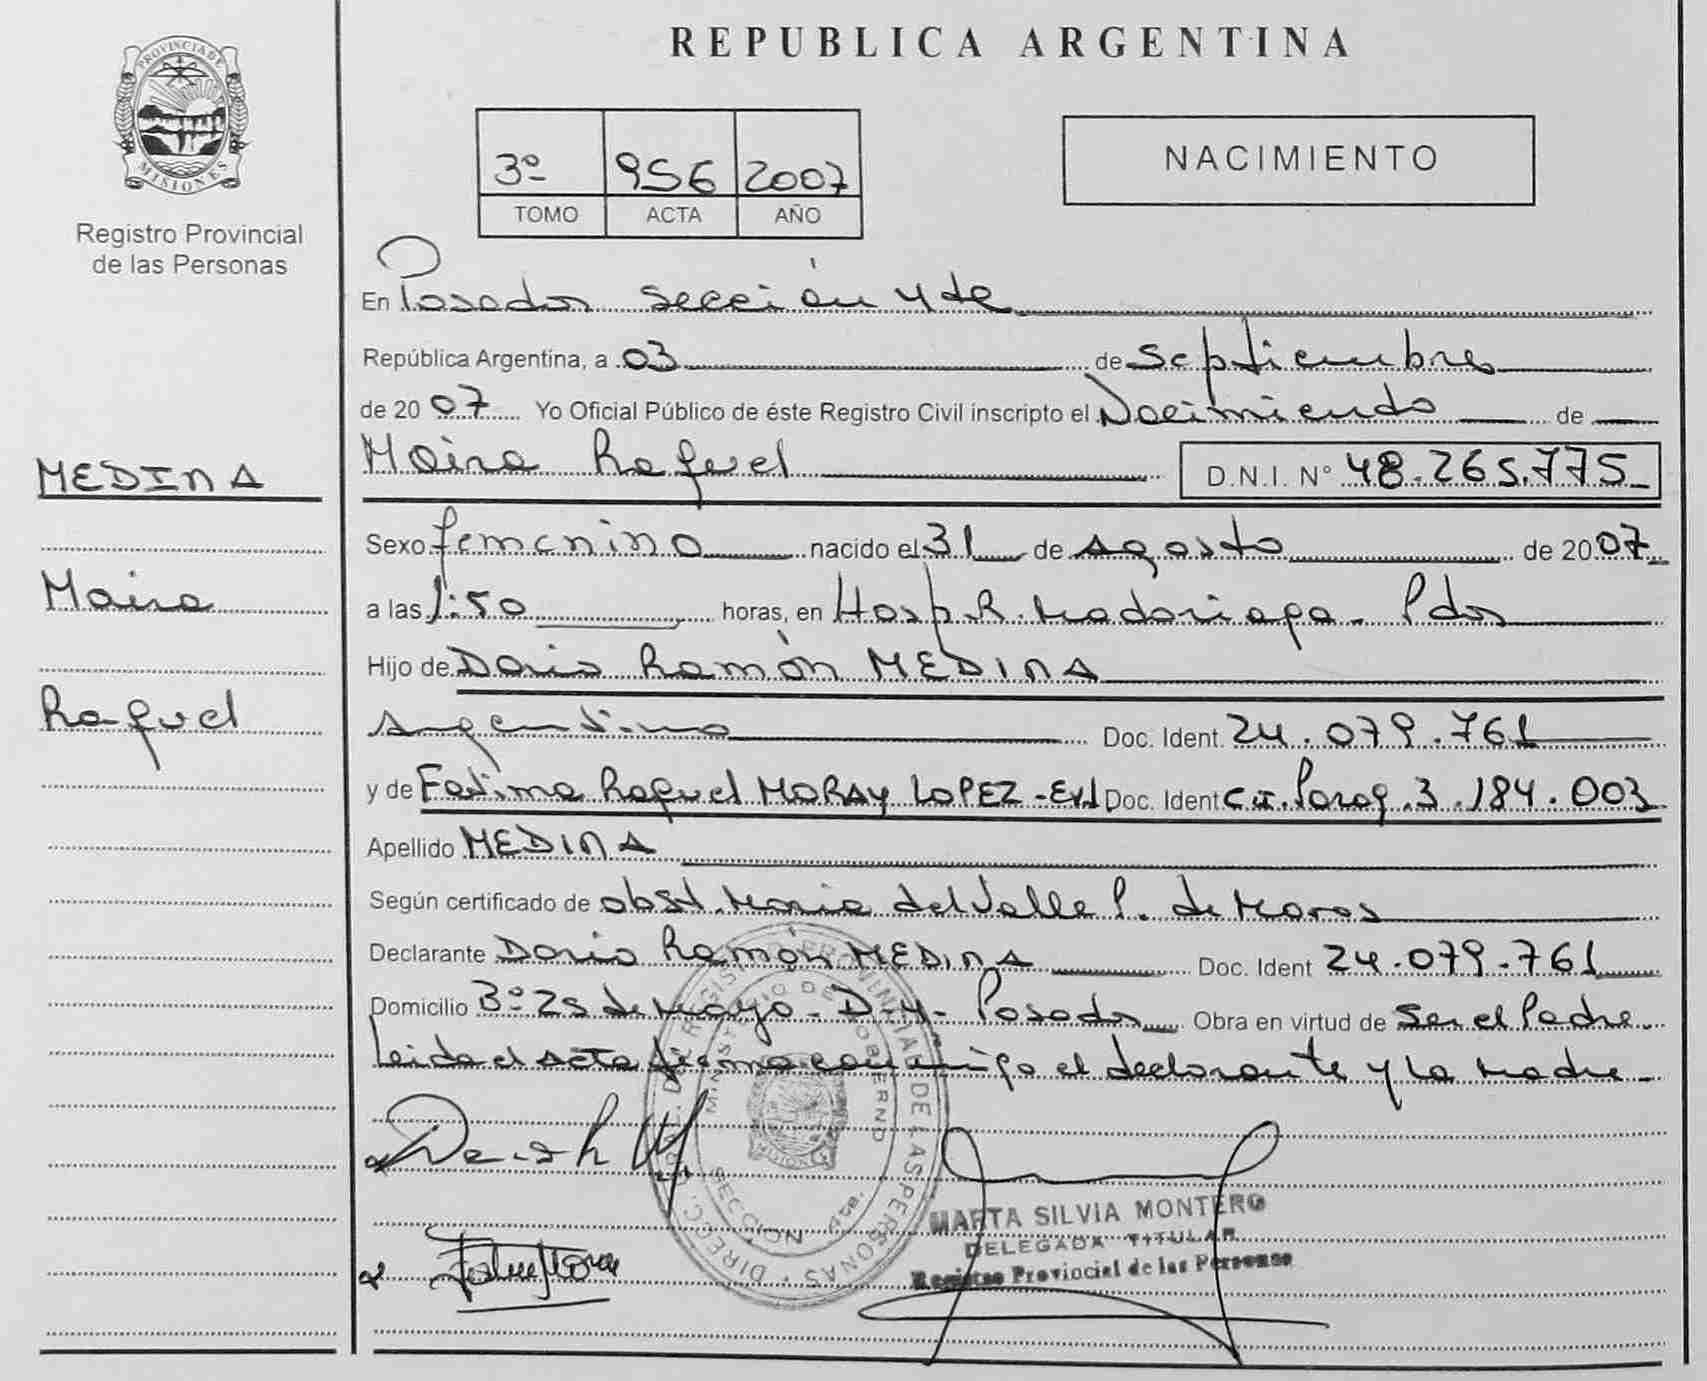 REPUBLICA ARGENTINA
PROVINCIA DE
MISIONES
Registro Provincial
de las Personas
3º 956 2007
TOMO ACTA AÑO
NACIMIENTO
MEDINA
Maira
Raquel
En Posadas sección 4ta
República Argentina, a 03 de septiembre
de 2007 Yo Oficial Público de éste Registro Civil inscripto el Nacimiento de
Maira Raquel D.N.I. Nº 48.265.775
Sexo femenino nacido el 31 de Agosto de 2007
a las 1:50 horas, en Hosp. R. Madariaga - Pdas
Hijo de Dario Ramón MEDINA
Argentino Doc. Ident. 24.079.761
y de Fatima Raquel MORAY LOPEZ - Doc. Ident C.I. Parag. 3.184.003
Apellido MEDINA
Según certificado de obst. Maria del Valle P. de
Declarante Dario Ramón MEDINA Doc. Ident 24.079.761
Domicilio 3º 25 de Mayo - - Posadas Obra en virtud de ser el Padre
Leida el acta firma conmigo el declarante y la madre
DIRECC. DEL REGISTRO PROVINCIAL DE LAS PERSONAS
MINISTERIO DE GOBIERNO
MISIONES
SECCION 4ta.
MARTA SILVIA MONTERO
DELEGADA TITULAR
Registro Provincial de las Personas